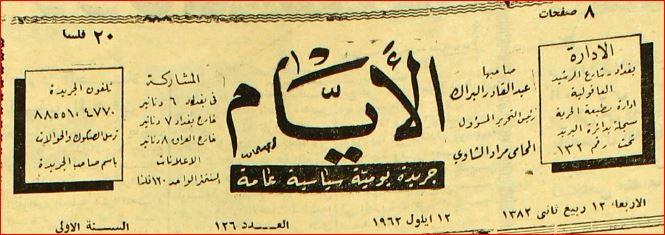 ٨ صفحات
٢٠ فلسا
الادارة
بغداد - شارع الرشيد
العاقولية
ادارة مطبعة الحرية
سجلت بدائرة البريد
تحت رقم ١٣٢
صاحبها
عبد القادر البراك
رئيس التحرير المسؤول
المحامي مراد الشاوي
الأيام
جريدة يومية سياسية عامة
المشاركة
في بغداد ٦ دنانير
خارج بغداد ٧ دنانير
خارج العراق ٨ دنانير
الاعلانات
السنتمتر الواحد ١٢٠ فلسا
تلفون الجريدة
٨٨٥٥١٠٤٧٧٠
ترسل الصكوك والحوالات
باسم صاحب الجريدة
الاربعاء ١٢ ربيع ثاني ١٣٨٢
١٢ ايلول ١٩٦٢
العـــدد ١٢٦
الســنة الاولى